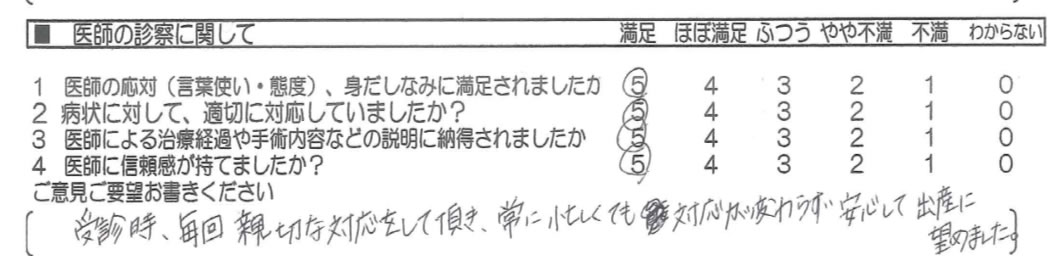 ■ 医師の診察に関して 満足 ほぼ満足 ふつう やや不満 不満 わからない
1 医師の応対（言葉使い・態度）、身だしなみに満足されましたか 5 4 3 2 1 0
2 病状に対して、適切に対応していましたか？ 5 4 3 2 1 0
3 医師による治療経過や手術内容などの説明に納得されましたか 5 4 3 2 1 0
4 医師に信頼感が持てましたか？ 5 4 3 2 1 0
ご意見ご要望お書きください
受診時、毎回親切な対応をして頂き、常に忙しくても対応が変わらず安心して出産に
望めました。